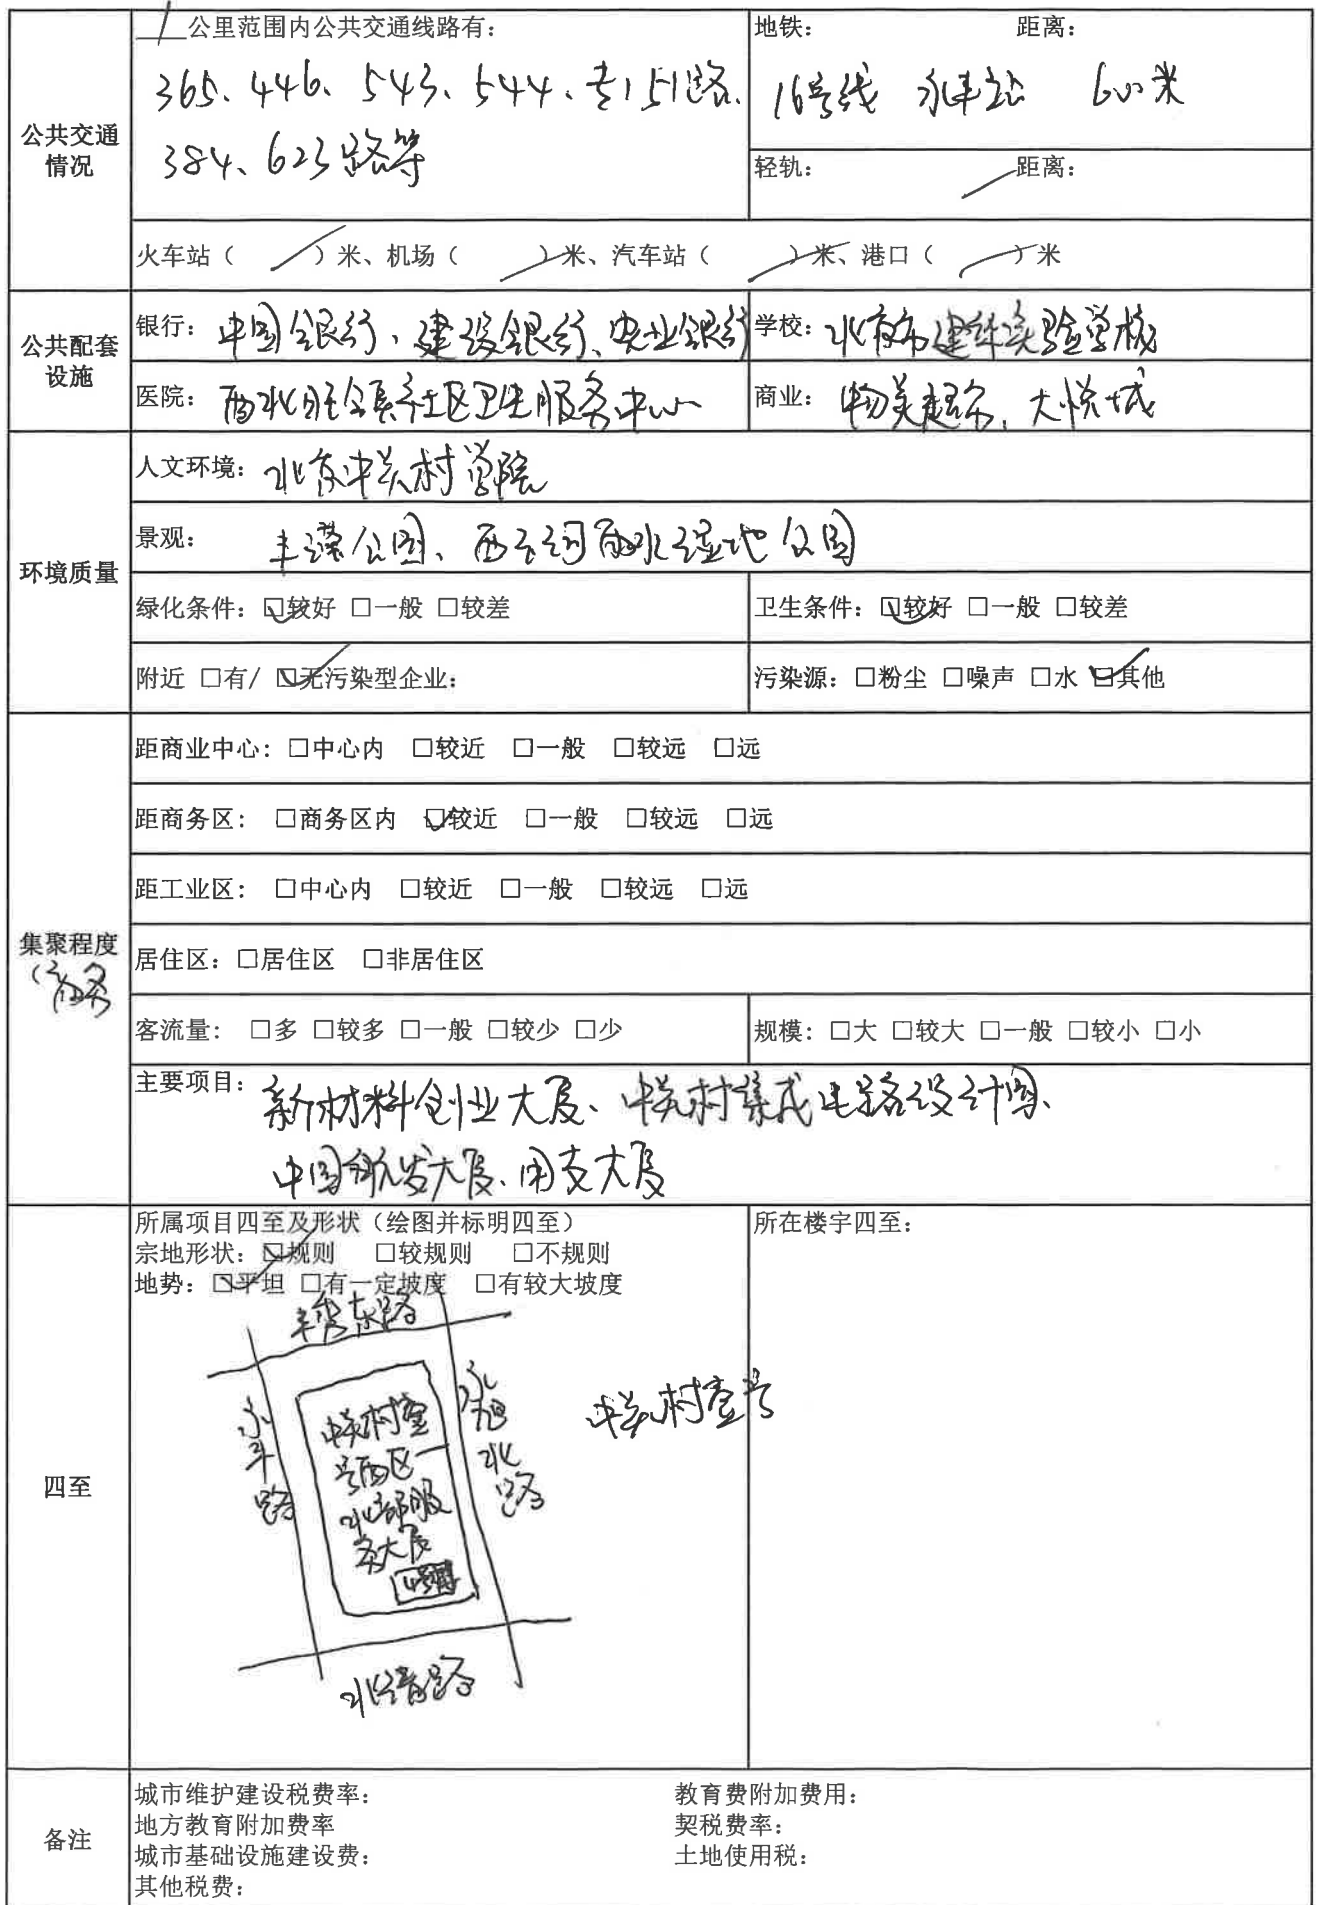 1公里范围内公共交通线路有：
365、446、543、544、专151路、
384、623路等
地铁： 距离：
16号线 永丰站 600米
轻轨： 距离：
公共交通
情况
火车站（ ）米、机场（ ）米、汽车站（ ）米、港口（ ）米
公共配套
设施
银行：中国银行、建设银行、兴业银行
学校：北京市建华实验学校
医院：西北旺镇社区卫生服务中心
商业：物美超市、大悦城
环境质量
人文环境：北京中关村学院
景观：丰滢公园、西玉河雨水湿地公园
绿化条件：☑较好 □一般 □较差
卫生条件：☑较好 □一般 □较差
附近 □有/ ☑无污染型企业：
污染源：□粉尘 □噪声 □水 ☑其他
集聚程度
距商业中心：□中心内 □较近 □一般 □较远 □远
距商务区： □商务区内 ☑较近 □一般 □较远 □远
距工业区： □中心内 □较近 □一般 □较远 □远
居住区：□居住区 □非居住区
客流量： □多 □较多 □一般 □较少 □少
规模：□大 □较大 □一般 □较小 □小
主要项目：新材料创业大厦、中关村集成电路设计园、
中国航发大厦、用友大厦
四至
所属项目四至及形状（绘图并标明四至）
宗地形状：☑规则 □较规则 □不规则
地势：☑平坦 □有一定坡度 □有较大坡度
丰秀东路
永丰路
中关村壹
号西区一
北部服
务大厦
永旭北路
中关村壹号
北清路
所在楼宇四至：
备注
城市维护建设税费率： 教育费附加费用：
地方教育附加费率 契税费率：
城市基础设施建设费： 土地使用税：
其他税费：